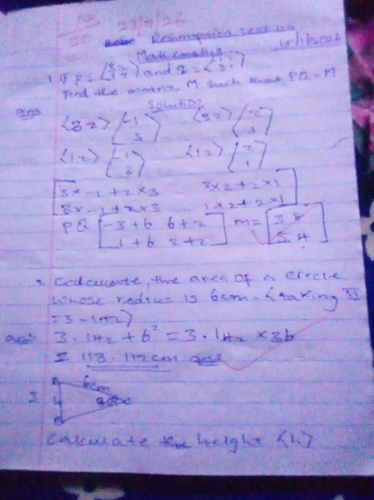 17
20
23/9/26
Resumption test on
Mathematics
1. If P = (3 2) and Q =
Find the matrix M such that PQ = M
ans
Solution
(3 2) (-1 3) (3 2) (2 1)
(1 2) (-1 3) (1 2) (2 1)
3x-1+2x3 3x2+2x1
3x-1+2x3 1x2+2x1
PQ [-3+6 6+2 M= [3 8
1+6 2+2] 5 4]
2. Calculate the area of a circle
whose radius is 6cm. (taking π
= 3.142)
ans
3.142 + 6² = 3.142 x 36
= 113.112cm ans
3. 6cm
Calculate the height (h)